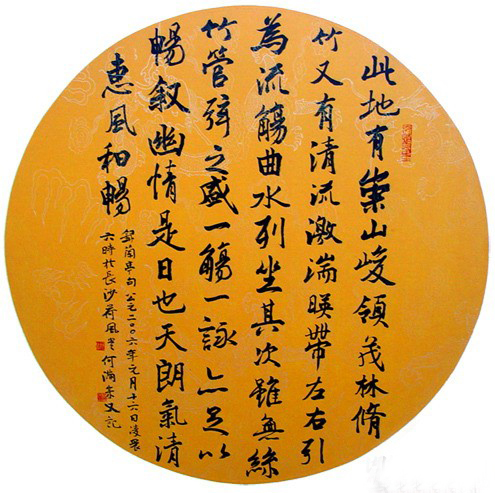 此地有崇山峻領茂林脩
竹又有清流激湍暎帶左右引
為流觴曲水列坐其次雖無絲
竹管弦之盛一觴一詠亦足以
暢叙幽情是日也天朗氣清
惠風和暢
蘭亭句公元二〇〇六年元月十六日凌晨
六時於長沙荷風堂何滿宗又記